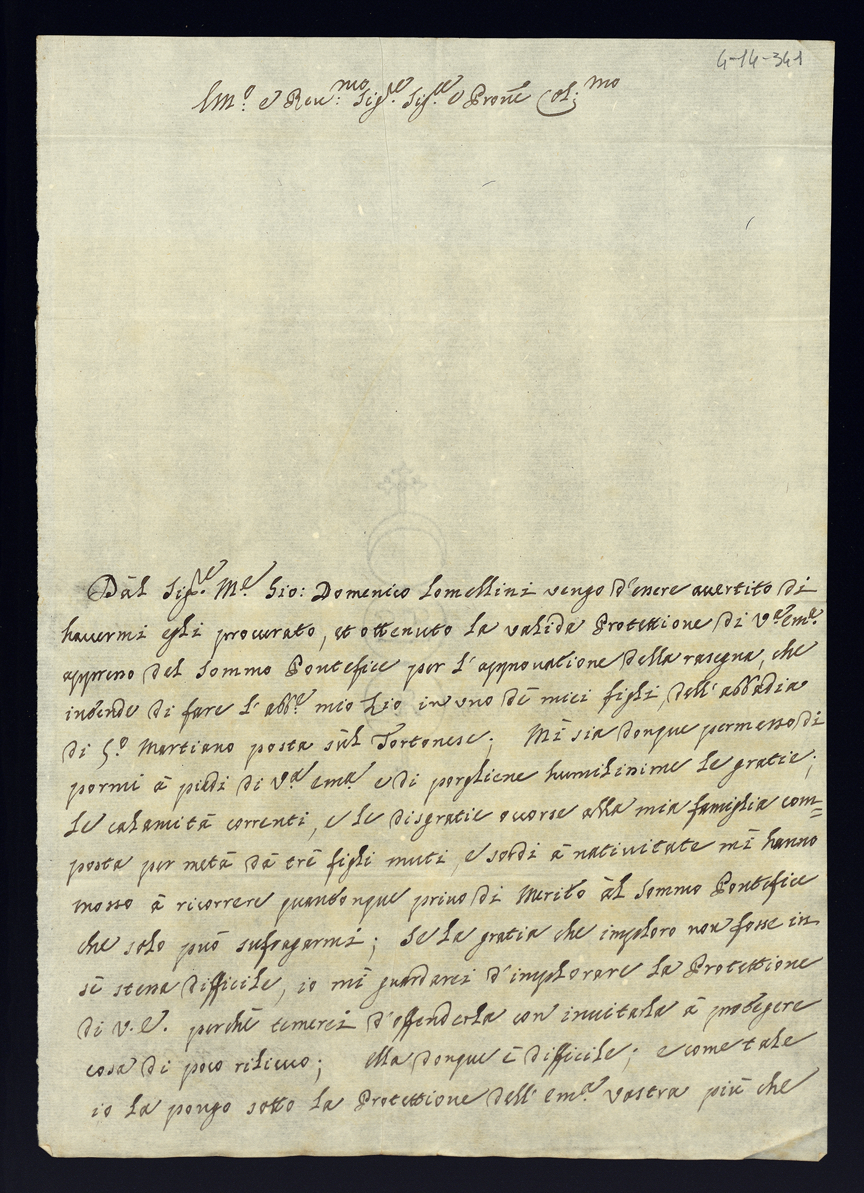 4-14-341
Em.º e Reu.mo Sig.re Sig.re e Pron̄e Col.mo
Dàl Sig.re M.e Gio: Domenico Lomellini vengo d'essere auertito di
hauermi egli procurato, et ottenuto la valida Protettione di V.a em.a
appresso del Sommo Pontefice per l'approuatione della rasegna, che
intende di fare l'abb.e mio Zio in uno dè miei figli, dell'abbadia
di S.º Martiano posta sùl Tortonese; Mi sia donque permesso di
pormi à piedi di V.a em.a e di porgliene humilissime le gratie;
Le calamità correnti, e le disgratie ocorse alla mia famiglia com=
posta per metà dà trè figli muti, e sordi à natiuitate mi hanno
mosso à ricorrere quantonque priuo di Merito àl Sommo Pontefice
che solo può sufragarmi; Se la gratia che imploro non fosse in
sè stessa difficile, io mi guardarei d'implorare la Protettione
di V.E. perchè temerei d'offenderla con inuitarla à protegere
cosa di poco rilieuo; ella donque è difficile; e come tale
io la pongo sotto la Protettione dell'em.a vostra più che